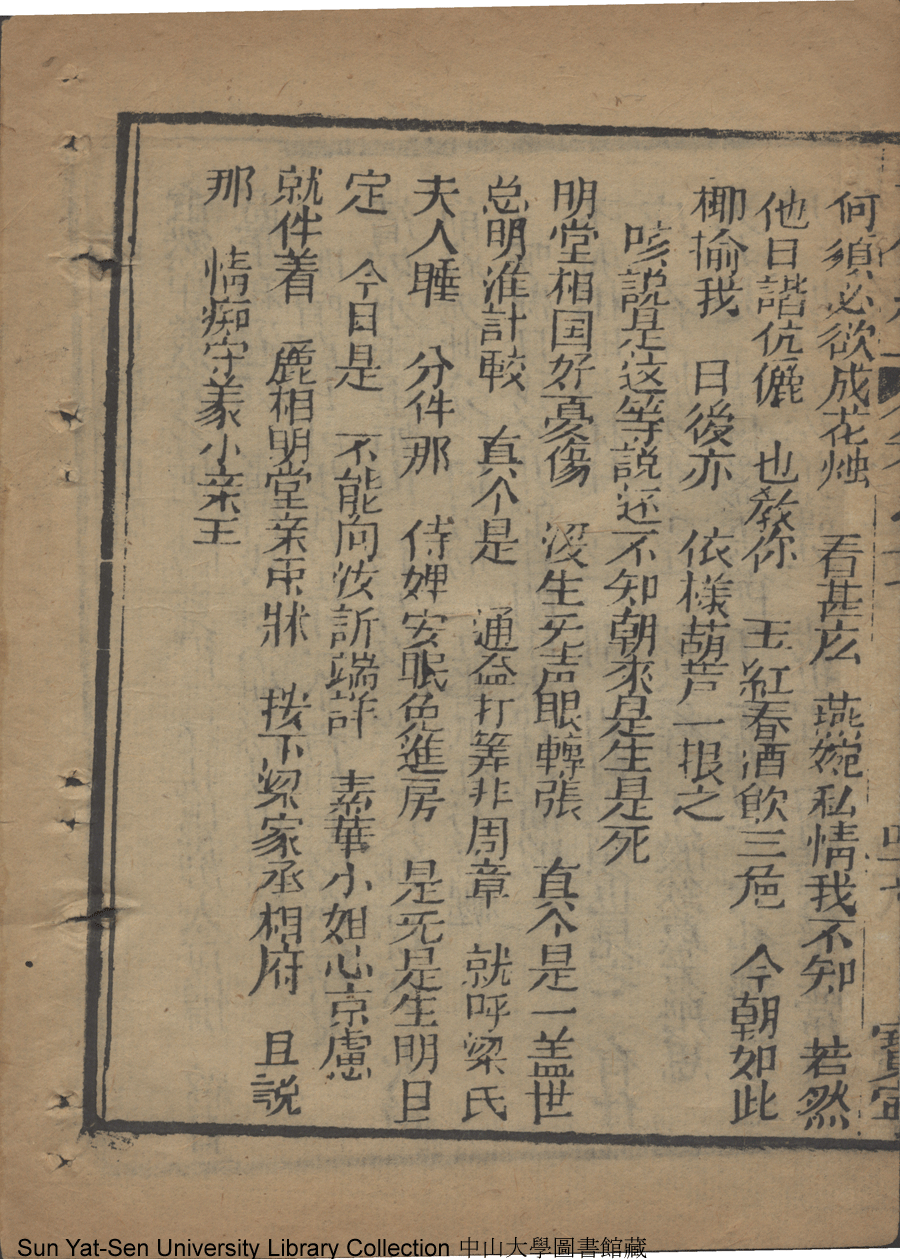 何須必欲成花烛　看甚庅　燕婉私情我不知　若然
他日諧伉儷　也教你　玉紅春酒飲三卮　今朝如此
揶揄我　日後亦　依樣葫芦一报之
咳說是这等說还不知朝來是生是死
明堂相国好憂傷　没生旡声眼轉張　真个是一盖世
总明准計較　真个是　通盆打筭非周章　就呼梁氏
夫人睡　分件那　侍婢安眠免進房　是死是生明日
定　今日是　不能向汝訴端詳　素華小姐心京慮
就件着　麗相明堂亲甬牀　按下梁家丞相府　且説
那　情痴守義小亲王
Sun Yat-Sen University Library Collection 中山大學圖書館藏